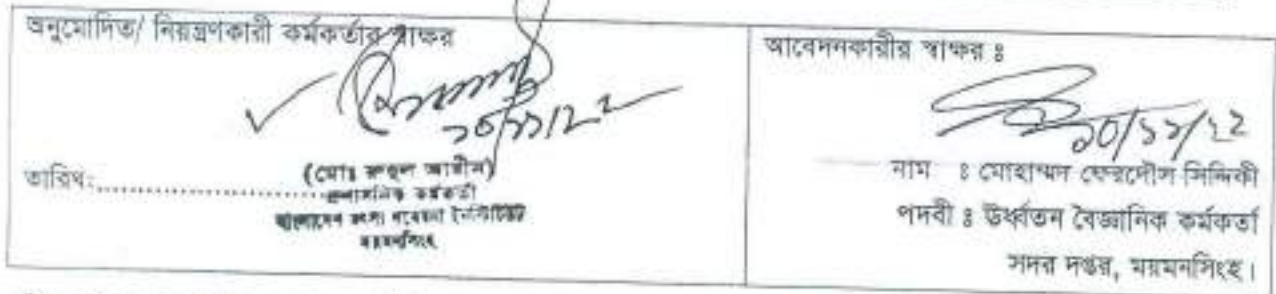 অনুমোদিত/ নিয়ন্ত্রণকারী কর্মকর্তার স্বাক্ষর
১০/১১/২২
তারিখ:
(মোঃ রুহুল আমীন)
প্রশাসনিক কর্মকর্তা
বাংলাদেশ মৎস্য গবেষণা ইনস্টিটিউট
ময়মনসিংহ
আবেদনকারীর স্বাক্ষর ঃ
১০/১১/২২
নাম ঃ মোহাম্মদ ফেরদৌস সিদ্দিকী
পদবী ঃ উর্ধ্বতন বৈজ্ঞানিক কর্মকর্তা
সদর দপ্তর, ময়মনসিংহ।